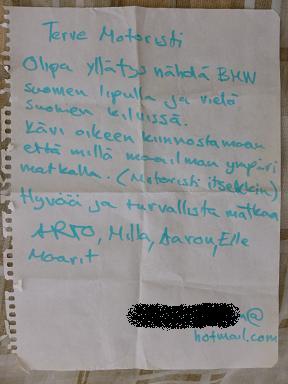 Terve Motoristi
Olipa yllätys nähdä BMW
suomen lipulla ja vielä
suomen kilvissä.
Kävi oikeen kiinnostamaan
että millä maailman ympäri
matkalla. (Motoristi itsekkin)
Hyvää ja turvallista matkaa
ARTO, Milla, Aaron, Elle
Maarit
@
hotmail.com